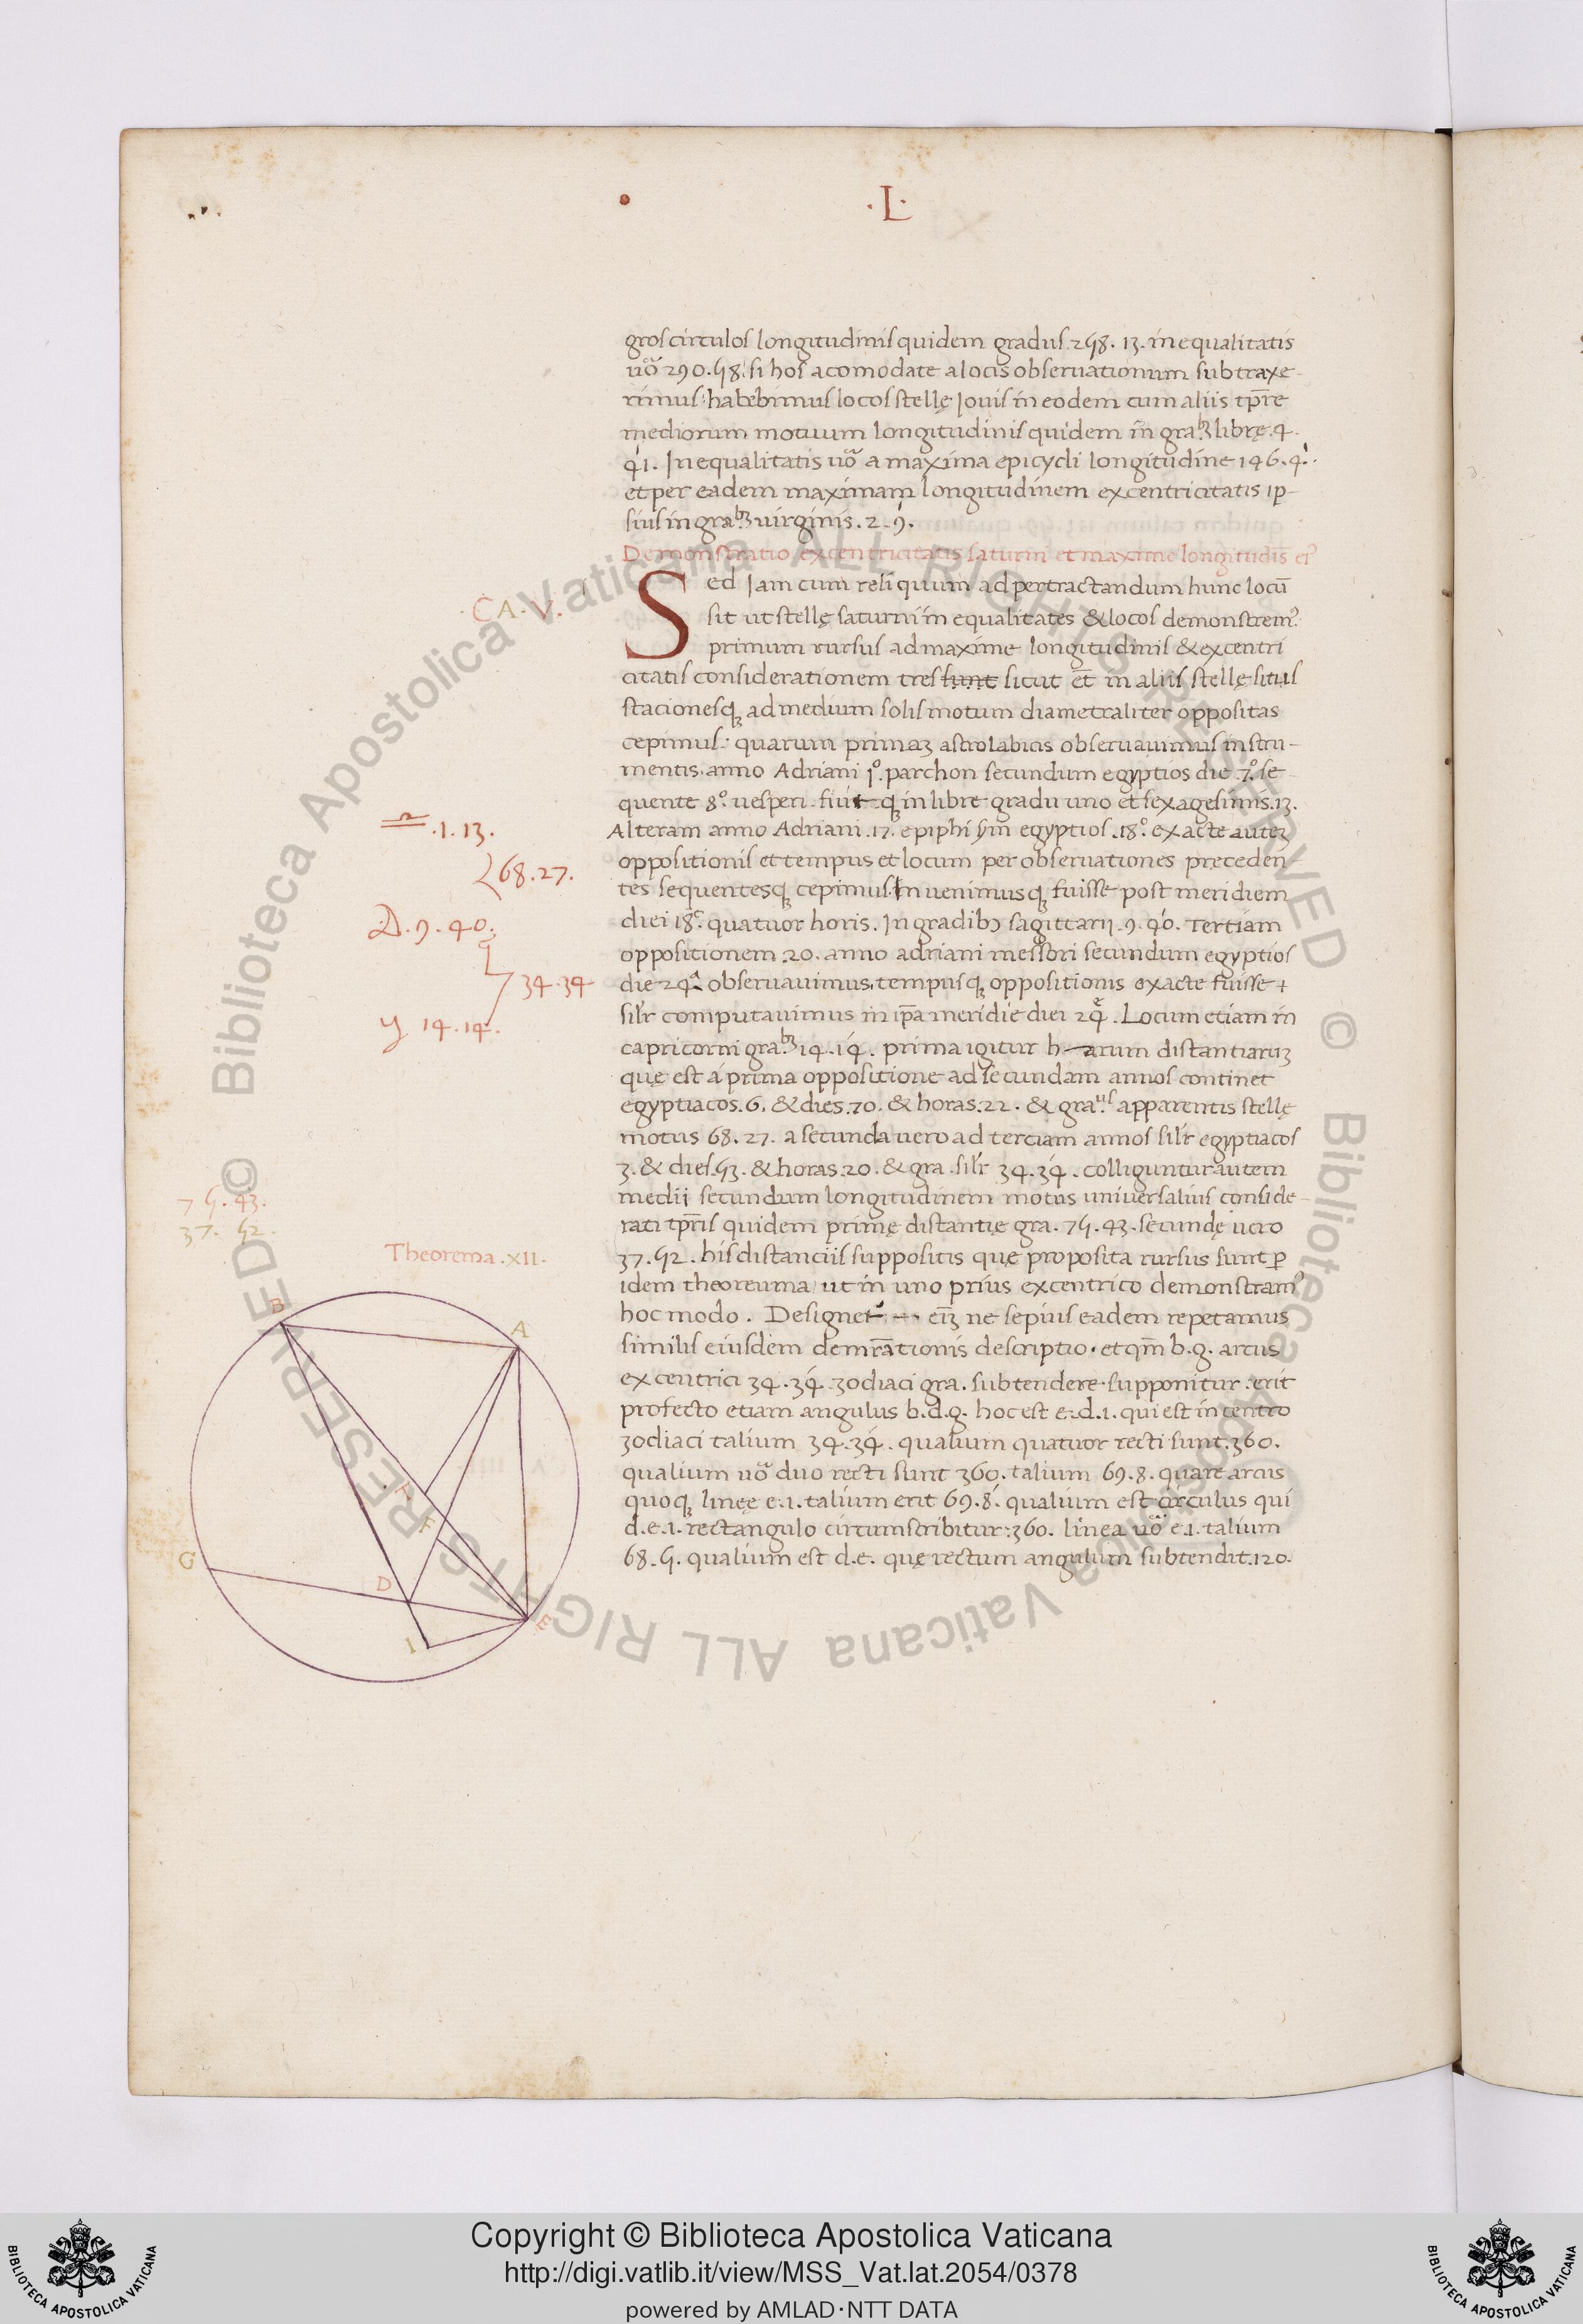 ·L·
gros circulos longitudinis quidem gradus 258. 13. inequalitatis
uo᷃ 290. 58. si hos acomodate a locis obseruationum subtraxe-
rimus: habebimus locos stellę Jouis in eodem cum aliis tp̄re
mediorum motuum longitudinis quidem in graᵇꝫ librę. 4.
41. Inequalitatis uo᷃ a maxima epicycli longitudine 146. 4.
et per eadem maximam longitudinem excentricitatis ip-
sius in graᵇꝫ uirginis. 2. 9.
Demonstratio excentricitatis saturni et maxime longitudīs eiꝰ
CA. V.
Sed Jam cum reliquum ad pertractandum hunc locū
sit ut stellę saturni inequalitates & locos demonstremꝰ:
primum rursus ad maxime longitudinis & excentri
citatis considerationem tres sunt sicut et̄ in aliis stellę situs
stacionesqꝫ ad medium solis motum diametraliter oppositas
cepimus: quarum primaꝫ astrolabicis obseruauimus instru-
mentis. anno Adriani Jº. parchon secundum egyptios die .7º. se
quente 8º. uesperi. fuit qꝫ in libre gradu uno et sexagesimis. 13.
Alteram anno Adriani. 17. epiphi sm̄ egyptios. 18º. exacte auteꝫ
oppositionis et tempus et locum per obseruationes preceden-
tes sequentesqꝫ cepimus. Inuenimusqꝫ fuisse post meridiem
diei 18ᵉ. quatuor horis. In gradibꝰ sagittarii. 9. 40. Tertiam
oppositionem. 20. anno adriani messori secundum egyptios
die 24ᵃ obseruauimus. tempusqꝫ oppositionis exacte fuisse +
silr̄ computauimus in ip̄a meridie diei 24ᵉ. Locum etiam in
capricorni graᵇꝫ 14. 14. prima igitur harum distantiaruꝫ
quę est a prima oppositione ad secundam annos continet
egyptiacos. 6. & dies. 70. & horas. 22. & graᵘˢ apparentis stellę
motus 68. 27. a secunda uero ad terciam annos silr̄ egyptiacos
3. & dies. 53. & horas. 20. & gra. silr̄ 34. 34. colliguntur autem
medii secundum longitudinem motus uniuersalius conside-
rati tp̄ris quidem primę distantię gra. 75. 43. secundę uero
37. 52. his distanciis suppositis quę proposita rursus sunt ꝑ
idem theoreuma ut in uno prius excentrico demonstramꝰ
hoc modo. Designet᷑ -- eiꝫ ne sepius eadem repetamus
similis eiusdem demr̄ationis descriptio. et qm̄ b.g. arcus
excentrici 34. 34. zodiaci gra. subtendere supponitur: erit
profecto etiam angulus b.d.g. hoc est e.d.1. qui est in centro
zodiaci talium 34. 34. qualium quatuor recti sunt. 360.
qualium uo᷃ duo recti sunt 360. talium 69. 8. quare arcus
quoqꝫ lineę e.1. talium erit 69. 8. qualium est circulus qui
d.e.1. rectangulo circumscribitur: 360. linea uo᷃ e.1. talium
68. 5. qualium est d.e. quę rectum angulum subtendit. 120.
♎ .1. 13.
68. 27.
9. 40.
34. 34
14. 14.
75. 43.
37. 52.
Theorema .XII.
B
A
F
G
D
E
I
© Biblioteca Apostolica Vaticana ALL RIGHTS RESERVED © Biblioteca Apostolica Vaticana ALL RIGHTS RESERVED
Copyright © Biblioteca Apostolica Vaticana
http://digi.vatlib.it/view/MSS_Vat.lat.2054/0378
powered by AMLAD·NTT DATA
BIBLIOTECA APOSTOLICA VATICANA
BIBLIOTECA APOSTOLICA VATICANA